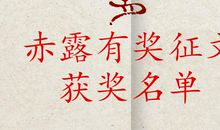 赤露有奖征文
获奖名单